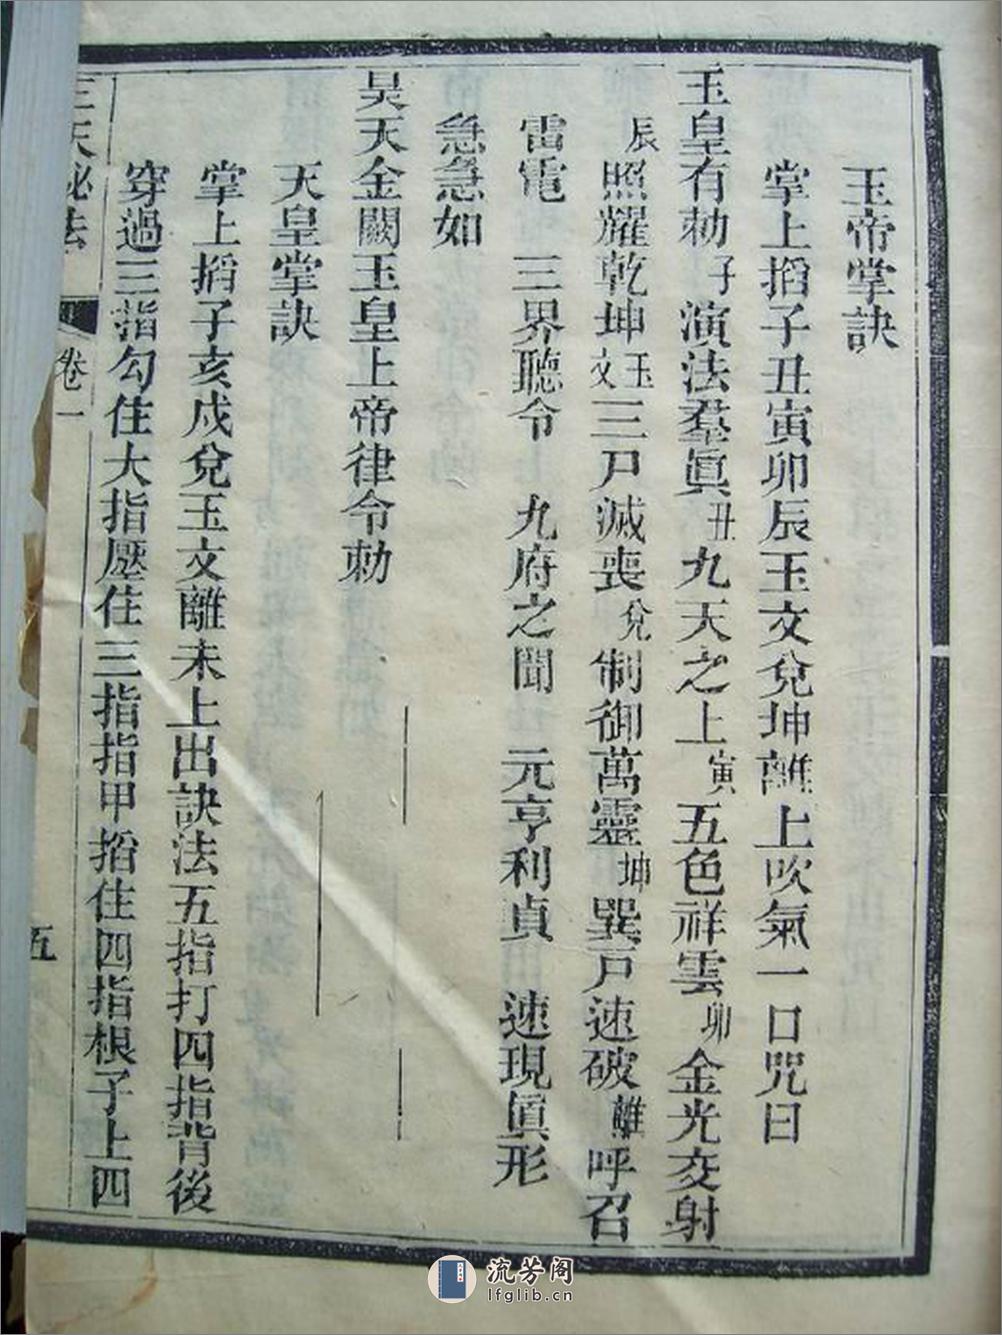 玉帝掌訣
掌上搯子丑寅卯辰玉文兌坤離上吹氣一口咒曰
玉皇有勅子演法羣眞丑九天之上寅五色祥雲卯金光交射
辰照耀乾坤玉文三尸滅喪兌制御萬靈坤巽戸速破離呼召
雷電　三界聽令　九府之聞　元亨利貞　速現眞形
急急如
昊天金闕玉皇上帝律令勅
天皇掌訣
掌上搯子亥戍兌玉文離未上出訣法五指打四指背後
穿過三指勾住大指壓住三指指甲搯住四指根子上四
三天秘法　卷一　五
流芳阁
lfglib.cn